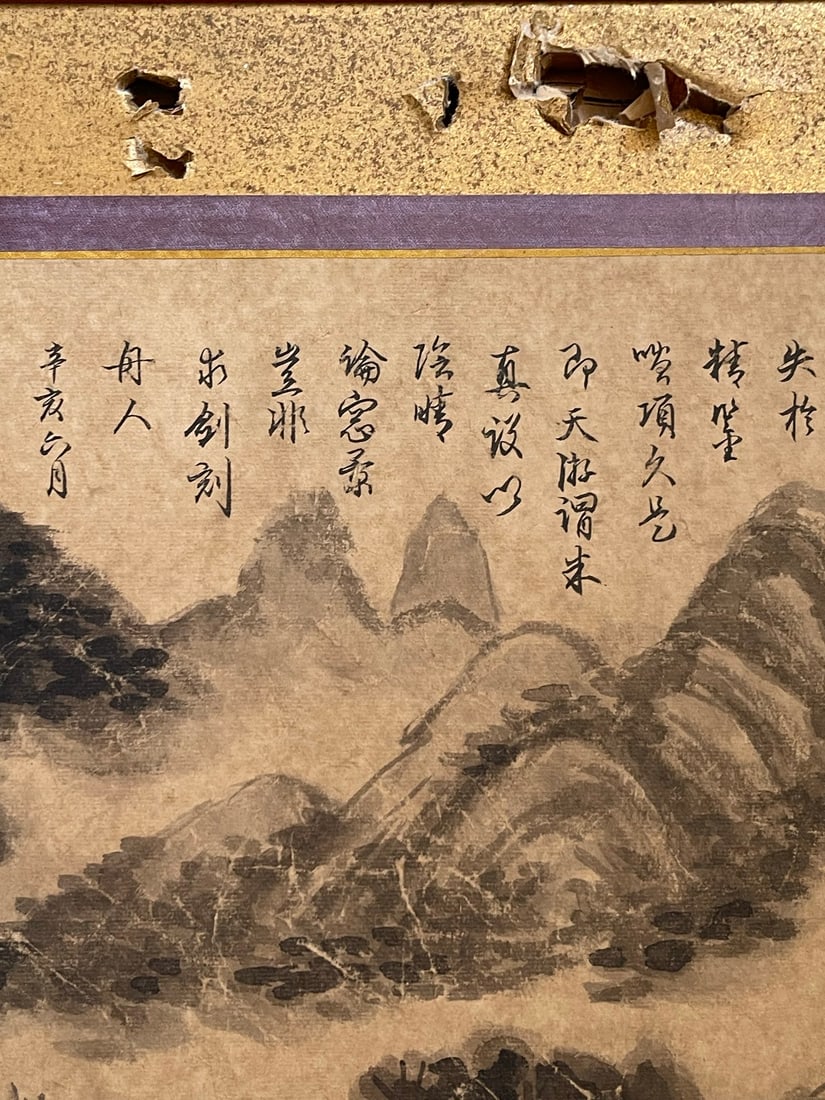 失於
精鑒
嗤項久是
即天游謂朱
真設以
陰晴
論窓景
豈非
求劍刻
舟人
辛亥六月